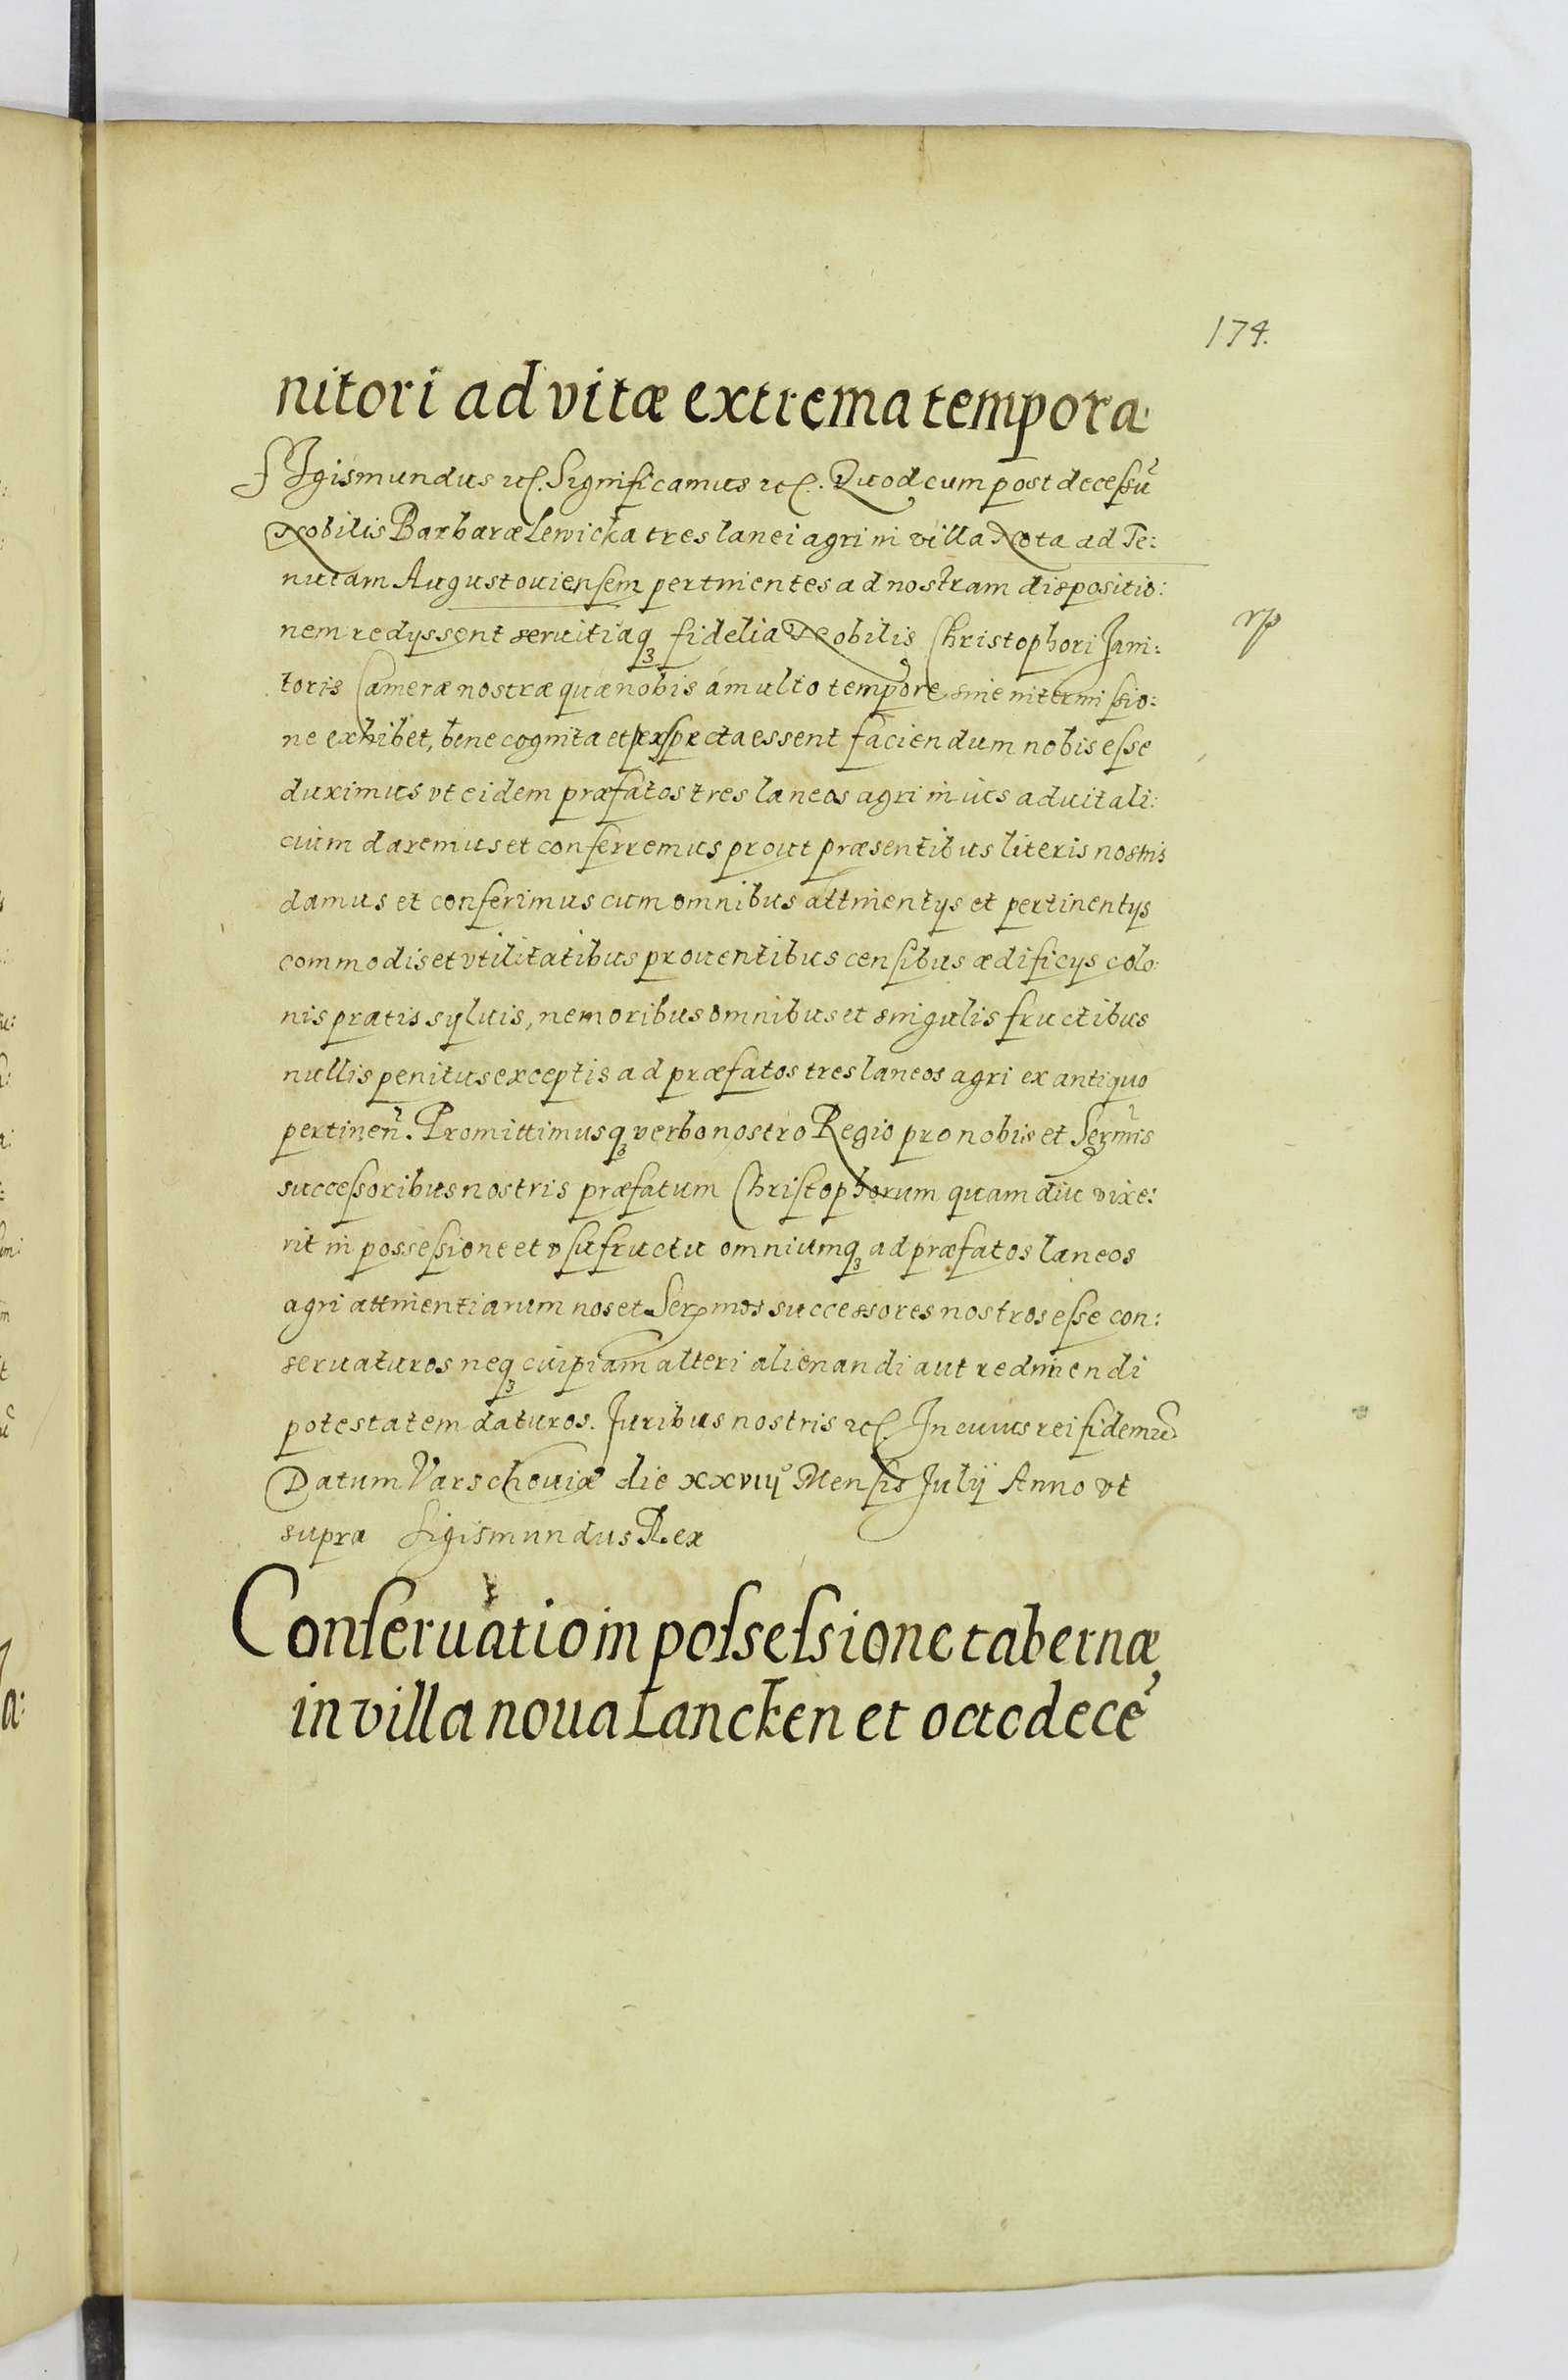 174.
nitori ad vitæ extrema tempora
SIgismundus etc. Significamus etc. Quod cum post decessũ
Nobilis Barbaræ Lewicka tres lanei agri in villa Nota ad Te:
nutam Augustouiensem pertinentes ad nostram dispositio:
nem redyssent seruitiaq3 fidelia Nobilis Christophori Jani:
toris Cameræ nostræ quæ nobis á multo tempore sine intermissio:
ne exhibet, bene cognita et perspecta essent faciendum nobis esse
duximus vt eidem præfatos tres laneos agri in ius aduitali:
cium daremus et conferremus prout præsentibus literis nostris
damus et conferimus cum omnibus attinentys et pertinentys
commodis et vtilitatibus prouentibus censibus ædificys colo:
nis pratis syluis, nemoribus omnibus et singulis fructibus
nullis penitus exceptis ad præfatos tres laneos agri ex antiquo
pertineñ. Promittimusq3 verbo nostro Regio pro nobis et Sermis
successoribus nostris præfatum Christophorum quam diu vixe:
rit in possessione et vsufructu omniumq3 ad præfatos laneos
agri attinentiarum nos et Sermos successores nostros esse con:
seruaturos neq3 cuipiam alteri alienandi aut redimendi
potestatem daturos. Juribus nostris etc. In cuius rei fidem etc
Datum Varschouiæ die xxviijº Mensis Julij Anno vt
supra Sigismundus Rex
Conseruatio in possessione tabernæ
in villa noua Lancken et octodecẽ